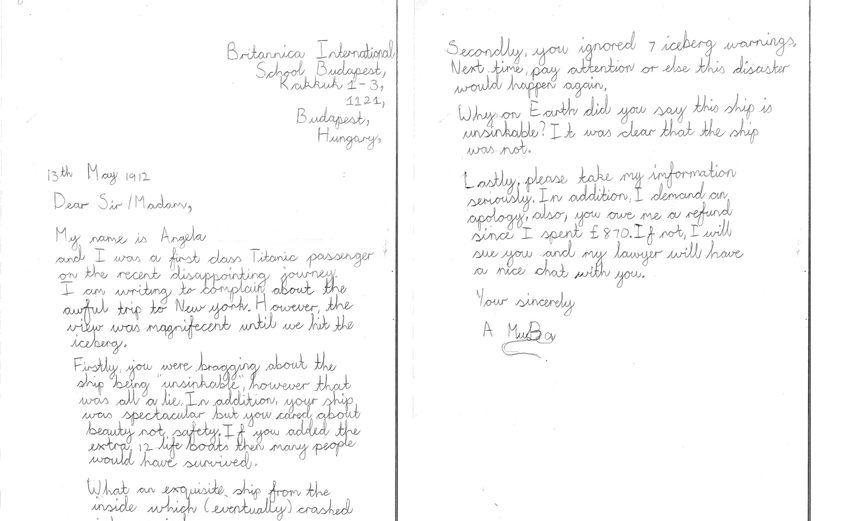 Britannica International
School Budapest,
Kakkuk 1-3,
1121,
Budapest,
Hungary,
13th May 1912
Dear Sir/Madam,
My name is Angela
and I was a first class Titanic passenger
on the recent disappointing journey.
I am writing to complain about the
awful trip to New york. However, the
view was magnifecent until we hit the
iceberg.
Firstly, you were bragging about the
ship being "unsinkable", however that
was all a lie. In addition, your ship
was spectacular but you cared about
beauty not safety. If you added the
extra 12 life boats then many people
would have survived.
What an exquisite ship from the
inside which (eventually) crashed
Secondly, you ignored 7 iceberg warnings.
Next time, pay attention or else this disaster
would happen again.
Why on Earth did you say this ship is
unsinkable? It was clear that the ship
was not.
Lastly, please take my imformation
seriously. In addition, I demand an
apology, also, you owe me a refund
since I spent £870. If not, I will
sue you and my lawyer will have
a nice chat with you.
Your sincerely
A